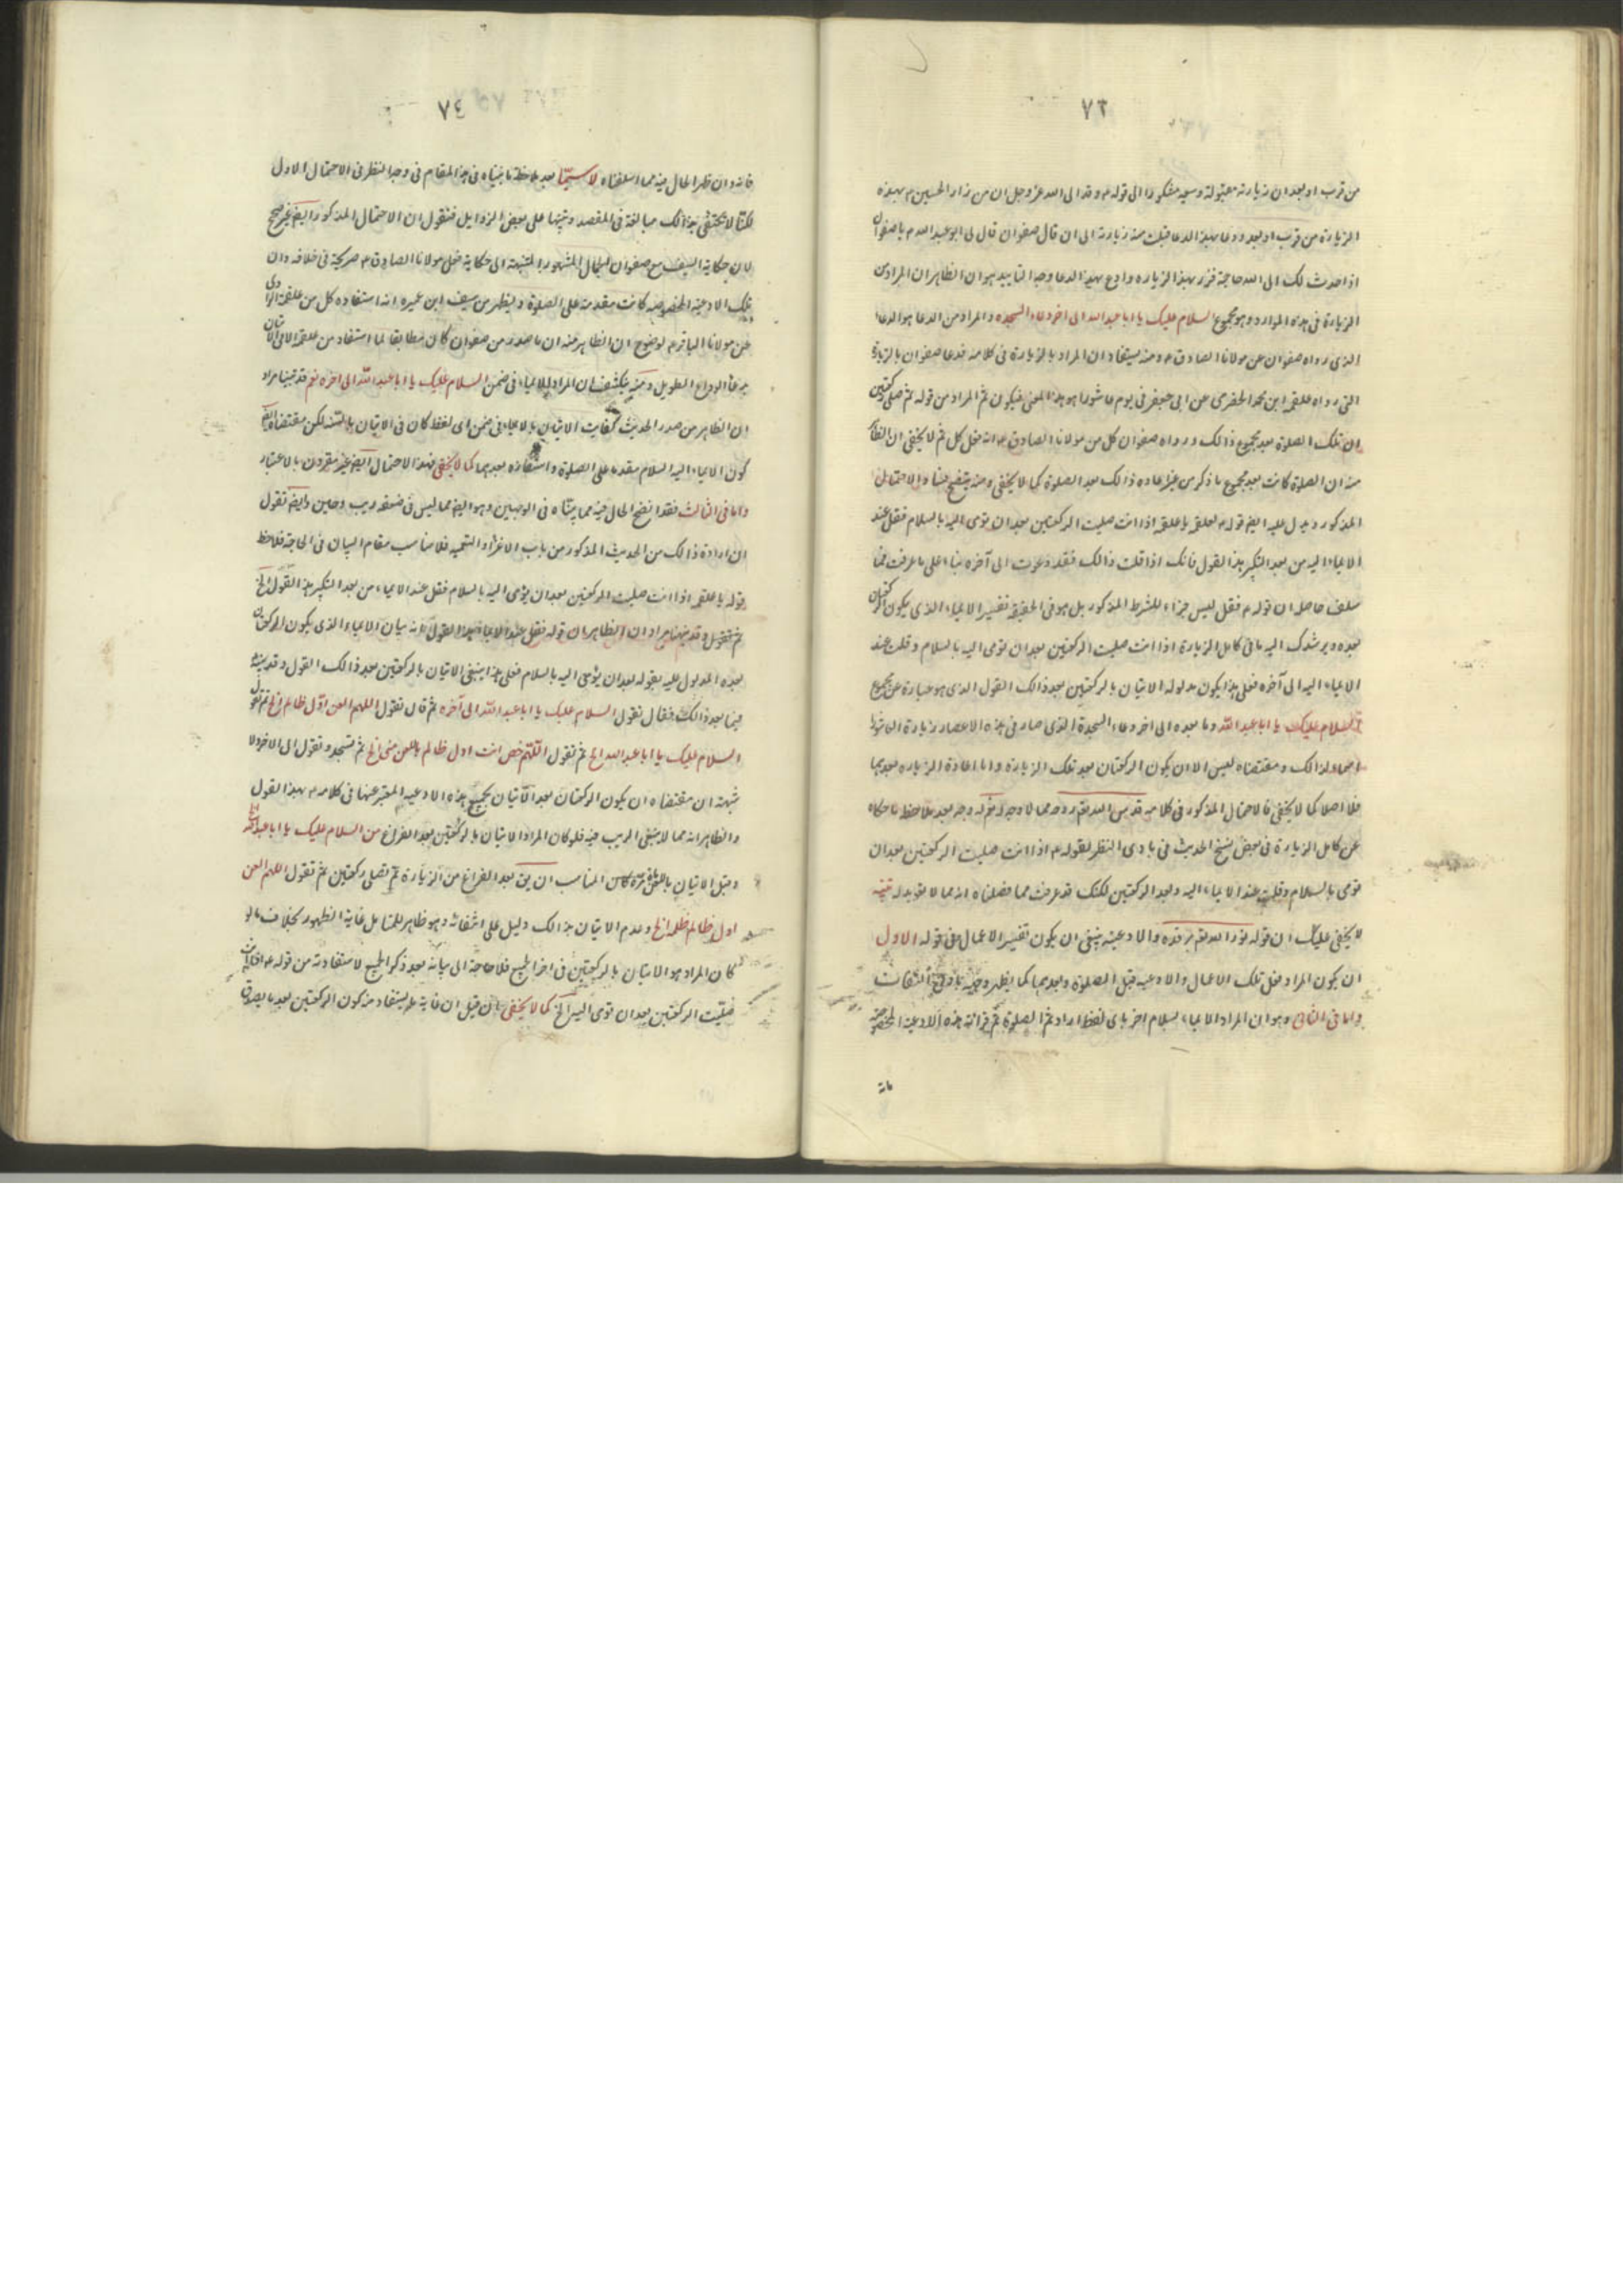 ٧٣
من قرب او بعد ان زيارته مقبولة وسعيه مشكورا الى قوله م وقد الى الله عز وجل ان من زار الحسين م بهذه
الزيارة من قرب او بعد ودعا بهذا الدعا قبلت منه زيارته الى ان قال صفوان قال لى ابو عبد الله م يا صفوان
اذا حدث لك الى الله حاجة فزر بهذا الزياره وادع بهذا الدعا وجه التاييد هو ان الظاهر ان المراد من
الزيارة فى هذه الموارد وهو مجموع السلام عليك يا ابا عبد الله الى اخر دعاء السجده والمراد من الدعا هو الدعاء
الذى رواه صفوان عن مولانا الصادق م ومنه يستفاد ان المراد بالزيارة فى كلامه فدعا صفوان بالزيارة
التى رواه علقمه ابن محمد الحضرمى عن ابى جعفر فى يوم عاشورا هو هذا المعنى فيكون ثم المراد من قوله ثم صلى ركعتين
ان تلك الصلوة بعد مجموع ذالك ورواه صفوان كل من مولانا الصادق م انه فعل كل ثم لا يخفى ان الظاهر
منه ان الصلوة كانت بعد مجموع ما ذكر من غير اعاده ذالك بعد الصلوة كما لا يخفى ومنه يتضح فساد الاحتمال
المذكور ويدل عليه ايضا قوله م لعلقمه يا علقمه اذا انت صليت الركعتين بعد ان تومى اليه بالسلام فقل عند
الايماء اليه من بعد التكبير هذا القول فانك اذا قلت ذالك فقد دعوت الى آخره بناء على ما عرفت مما
سلف حاصله ان قوله م فقل ليس جزاء للشرط المذكور بل هو فى الحقيقه تفسير الايماء الذى يكون الركعتان
بعده ويرشدك اليه ما فى كامل الزيارة اذا انت صليت الركعتين بعد ان تومى اليه بالسلام وقلت عند
الايماء اليه الى آخره فعلى هذا يكون مدلوله الاتيان بالركعتين بعد ذالك القول الذى هو عبارة عن مجموع
السلام عليك يا ابا عبد الله وما بعده الى اخر دعاء السجدة الذى صار فى هذه الاعصار زيارة العاشورا
اسما لذالك ومقتضاه ليس الا ان يكون الركعتان بعد تلك الزيارة واما اعادة الزياره بعدهما
فلا اصلا كما لا يخفى فالاحتمال المذكور فى كلامه قدس الله تعالى روحه مما لا وجه له نعم له وجه بعد ملاحظه ما حكاه
عن كامل الزيارة فى بعض نسخ الحديث فى بادى النظر لقوله م اذا انت صليت الركعتين بعد ان
تومى بالسلام وقلت عند الايماء اليه وبعد الركعتين لكنك قد عرفت مما فصلناه انه مما لا تعويل له تنبيه
لا يخفى عليك ان قوله نور الله تعالى مرقده والادعية ينبغى ان يكون تفسير الاعمال وفى قوله الاول
ان يكون المراد فعل تلك الاعمال والادعيه قبل الصلوة وبعدها كما يظهر وجهه بادنى التفات
واما فى الثانى وهو ان المراد الايماء بسلام اخر باى لفظ اراد ثم الصلوة ثم قرائة هذه الادعية المخصوصة
فانه
٧٤
فانه وان ظهر الحال فيه مما اسلفناه لا سيّما بعد ملاحظة ما بيناه فى هذا المقام فى وجه النظر فى الاحتمال الاول
لكنّا لا نكتفى بذالك مبالغة فى المقصد وتنبيها على بعض الزوايد فنقول ان الاحتمال المذكور ايضا غير صحيح
لان حكاية السيف مع صفوان الجمال المشهور المنتهية الى حكاية فعل مولانا الصادق م صريحة فى خلافه وان
تلك الادعية المخصوصه كانت مقدمة على الصلوة ويظهر من سيف ابن عميره انه استفاده كل من علقمة الراوى
عن مولانا الباقر م لوضوح ان الظاهر منه ان ما صدر من صفوان كان مطابقا لما استفاد من علقمه الا فى الاتيان
بدعاء الوداع الطويل ومنه ينكشف ان المراد بالايماء فى ضمن السلام عليك يا ابا عبد الله الى اخره نعم قد بينا مرارا
ان الظاهر من صدر الحديث كفايت الاتيان بالايماء فى ضمن اى لفظ كان فى الاتيان بالسنه لكن مقتضاه ايضا
كون الايماء اليه السلام مقدما على الصلوة واستفاده بعدهما كما لا يخفى فهذا الاحتمال ايضا غير مقرون بالاعتبار
واما فى الثالث فقد اتضح الحال فيه مما بيّناه فى الوجهين وهو ايضا مما ليس فى ضعفه ريب ومين وايضا نقول
ان ارادة ذالك من الحديث المذكور من باب الالغاز والتعمية فلا يناسب مقام البيان فى الحاجة فلاحظ
قوله يا علقمه اذا انت صليت الركعتين بعد ان يومى اليه بالسلام فقل عند الايماء من بعد التكبير هذا القول الخ
ثم نقول وقد نبهنا مرارا ان الظاهر ان قوله فقل عند الايماء هذا القول انه بيان الايماء الذى يكون الركعتان
بعده المدلول عليه بقوله بعد ان يومى اليه بالسلام فعلى هذا ينبغى الاتيان بالركعتين بعد ذالك القول وقد بينه
فيما بعد ذالك فقال تقول السلام عليك يا ابا عبد الله الى آخره ثم قال تقول اللهم العن اوّل ظالم الخ ثم تقول
السلام عليك يا ابا عبد الله الخ ثم تقول اللّهم خص انت اول ظالم باللعن منى الخ ثم تسجد وتقول الى الاخر ولا
شبهة ان مقتضاه ان يكون الركعتان بعد الاتيان بجميع هذه الادعيه المعتبر عنها فى كلامه م بهذا القول
والظاهر انه مما لا ينبغى الريب فيه فلو كان المراد الاتيان بالركعتين بعد الفراغ من السلام عليك يا ابا عبد الله الخ
وقبل الاتيان باللعن مائة مرة كان المناسب ان يق بعد الفراغ من الزيارة ثم تصلى ركعتين ثم تقول اللهم العن
اول ظالم ظلم الخ وعدم الاتيان بذالك دليل على انتفائه وهو ظاهر للمتامل غاية الظهور بخلاف ما لو
كان المراد هو الاتيان بالركعتين فى اخر الجميع فلا حاجة الى بيانه بعد ذكر الجميع لاستفادته من قوله م اذا انت
صليت الركعتين بعد ان تومى اليه الخ كما لا يخفى ان قيل ان غاية ما يستفاد منه كون الركعتين بعد ما يصدق